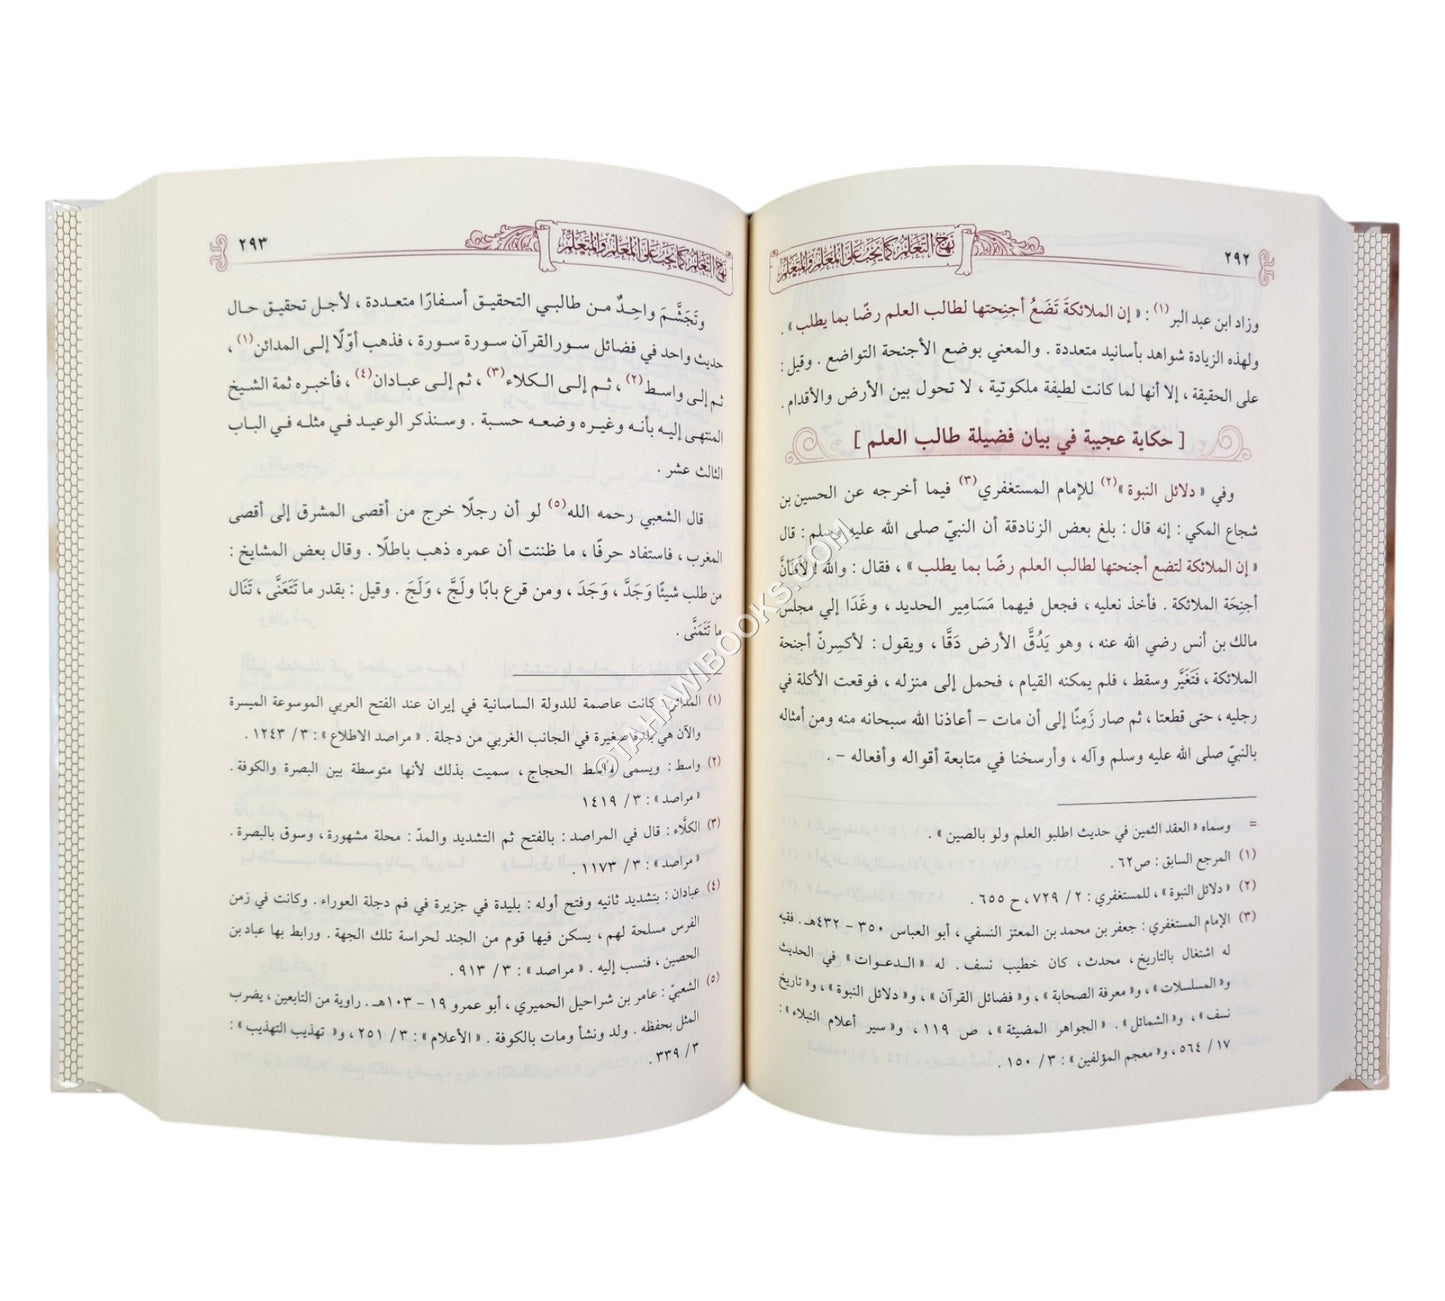 ٢٩٢
نهج التعلم كما يجب على المعلم والمتعلم
وزاد ابن عبد البر(١) : « إن الملائكةَ تَضَعُ أجنِحتها لطالب العلم رضًا بما يطلب » .
ولهذه الزيادة شواهد بأسانيد متعددة . والمعني بوضع الأجنحة التواضع . وقيل :
على الحقيقة ، إلا أنها لما كانت لطيفة ملكوتية ، لا تحول بين الأرض والأقدام .
[ حكاية عجيبة في بيان فضيلة طالب العلم ]
وفي « دلائل النبوة »(٢) للإمام المستغفري(٣) فيما أخرجه عن الحسين بن
شجاع المكي : إنه قال : بلغ بعض الزنادقة أن النبيّ صلى الله عليه وسلم : قال
« إن الملائكة لتضع أجنحتها لطالب العلم رضًا بما يطلب » ، فقال : والله لأطَأنَّ
أجنِحَة الملائكة . فأخذ نعليه ، فجعل فيهما مَسَامِير الحديد ، وغَدَا إلي مجلس
مالك بن أنس رضي الله عنه ، وهو يَدُقَّ الأرض دَقًّا ، ويقول : لأكسِرنّ أجنحة
الملائكة ، فَتَغَيَّر وسقط ، فلم يمكنه القيام ، فحمل إلى منزله ، فوقعت الأكلة في
رجليه ، حتى قطعتا ، ثم صار زَمِنًا إلى أن مات – أعاذنا الله سبحانه منه ومن أمثاله
بالنبيّ صلى الله عليه وسلم وآله ، وأرسخنا في متابعة أقواله وأفعاله – .
= وسماه « العقد الثمين في حديث اطلبو العلم ولو بالصين » .
(١) المرجع السابق : ص٦٢ .
(٢) « دلائل النبوة » ، للمستغفري : ٢ / ٧٢٩ ، ح ٦٥٥ .
(٣) الإمام المستغفري : جعفر بن محمد بن المعتز النسفي ، أبو العباس ٣٥٠ – ٤٣٢هـ . فقيه
له اشتغال بالتاريخ ، محدث ، كان خطيب نسف . له « الـدعـوات » في الحديث
و« المسلسلات » ، و« معرفة الصحابة » ، و« فضائل القرآن » ، و« دلائل النبوة » ، و« تاريخ
نسف » ، و« الشمائل » . « الجواهر المضيئة » ، ص ١١٩ ، و« سير أعلام النبلاء » :
١٧/ ٥٦٤ ، و« معجم المؤلفين » : ٣/ ١٥٠ .
نهج التعلم كما يجب على المعلم والمتعلم
٢٩٣
وتَجَشَّمَ واحِدٌ من طالبي التحقيق أسفارًا متعددة ، لأجل تحقيق حال
حديث واحد في فضائل سور القرآن سورة سورة ، فذهب أوّلًا إلى المدائن(١) ،
ثم إلى واسط(٢) ، ثم إلى الكلاء(٣) ، ثم إلى عبادان(٤) ، فأخبره ثمة الشيخ
المنتهى إليه بأنه وغيره وضعه حسبة . وسنذكر الوعيد في مثله في الباب
الثالث عشر .
قال الشعبي رحمه الله(٥) لو أن رجلًا خرج من أقصى المشرق إلى أقصى
المغرب ، فاستفاد حرفًا ، ما ظننت أن عمره ذهب باطلًا . وقال بعض المشايخ :
من طلب شيئًا وَجَدَّ ، وَجَدَ ، ومن قرع بابًا ولَجَّ ، وَلَجَ . وقيل : بقدر ما تَتَعَنَّى ، تَنَال
ما تَتَمَنَّى .
(١) المدائن : كانت عاصمة للدولة الساسانية في إيران عند الفتح العربي الموسوعة الميسرة
والآن هي بلدة صغيرة في الجانب الغربي من دجلة . « مراصد الاطلاع » : ٣/ ١٢٤٣ .
(٢) واسط : ويسمى واسط الحجاج ، سميت بذلك لأنها متوسطة بين البصرة والكوفة .
« مراصد » : ٣/ ١٤١٩
(٣) الكلَّاء : قال في المراصد : بالفتح ثم التشديد والمدّ : محلة مشهورة ، وسوق بالبصرة .
« مراصد » : ٣/ ١١٧٣ .
(٤) عبادان : بتشديد ثانيه وفتح أوله : بليدة في جزيرة في فم دجلة العوراء . وكانت في زمن
الفرس مسلحة لهم ، يسكن فيها قوم من الجند لحراسة تلك الجهة . ورابط بها عباد بن
الحصين ، فنسب إليه . « مراصد » : ٣/ ٩١٣ .
(٥) الشعبيّ : عامر بن شراحيل الحميري ، أبو عمرو ١٩ – ١٠٣هـ . راوية من التابعين ، يضرب
المثل بحفظه . ولد ونشأ ومات بالكوفة . « الأعلام » : ٣/ ٢٥١ ، و« تهذيب التهذيب » :
٣/ ٣٣٩ .
©TAHAWIBOOKS.COM